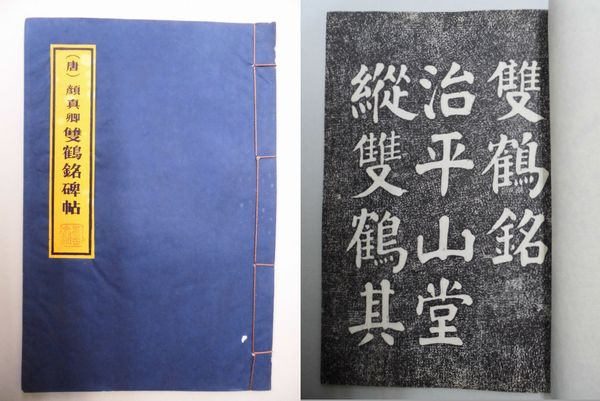 （唐）顔真卿雙鶴銘碑帖
雙鶴銘
治平山堂
縱雙鶴其